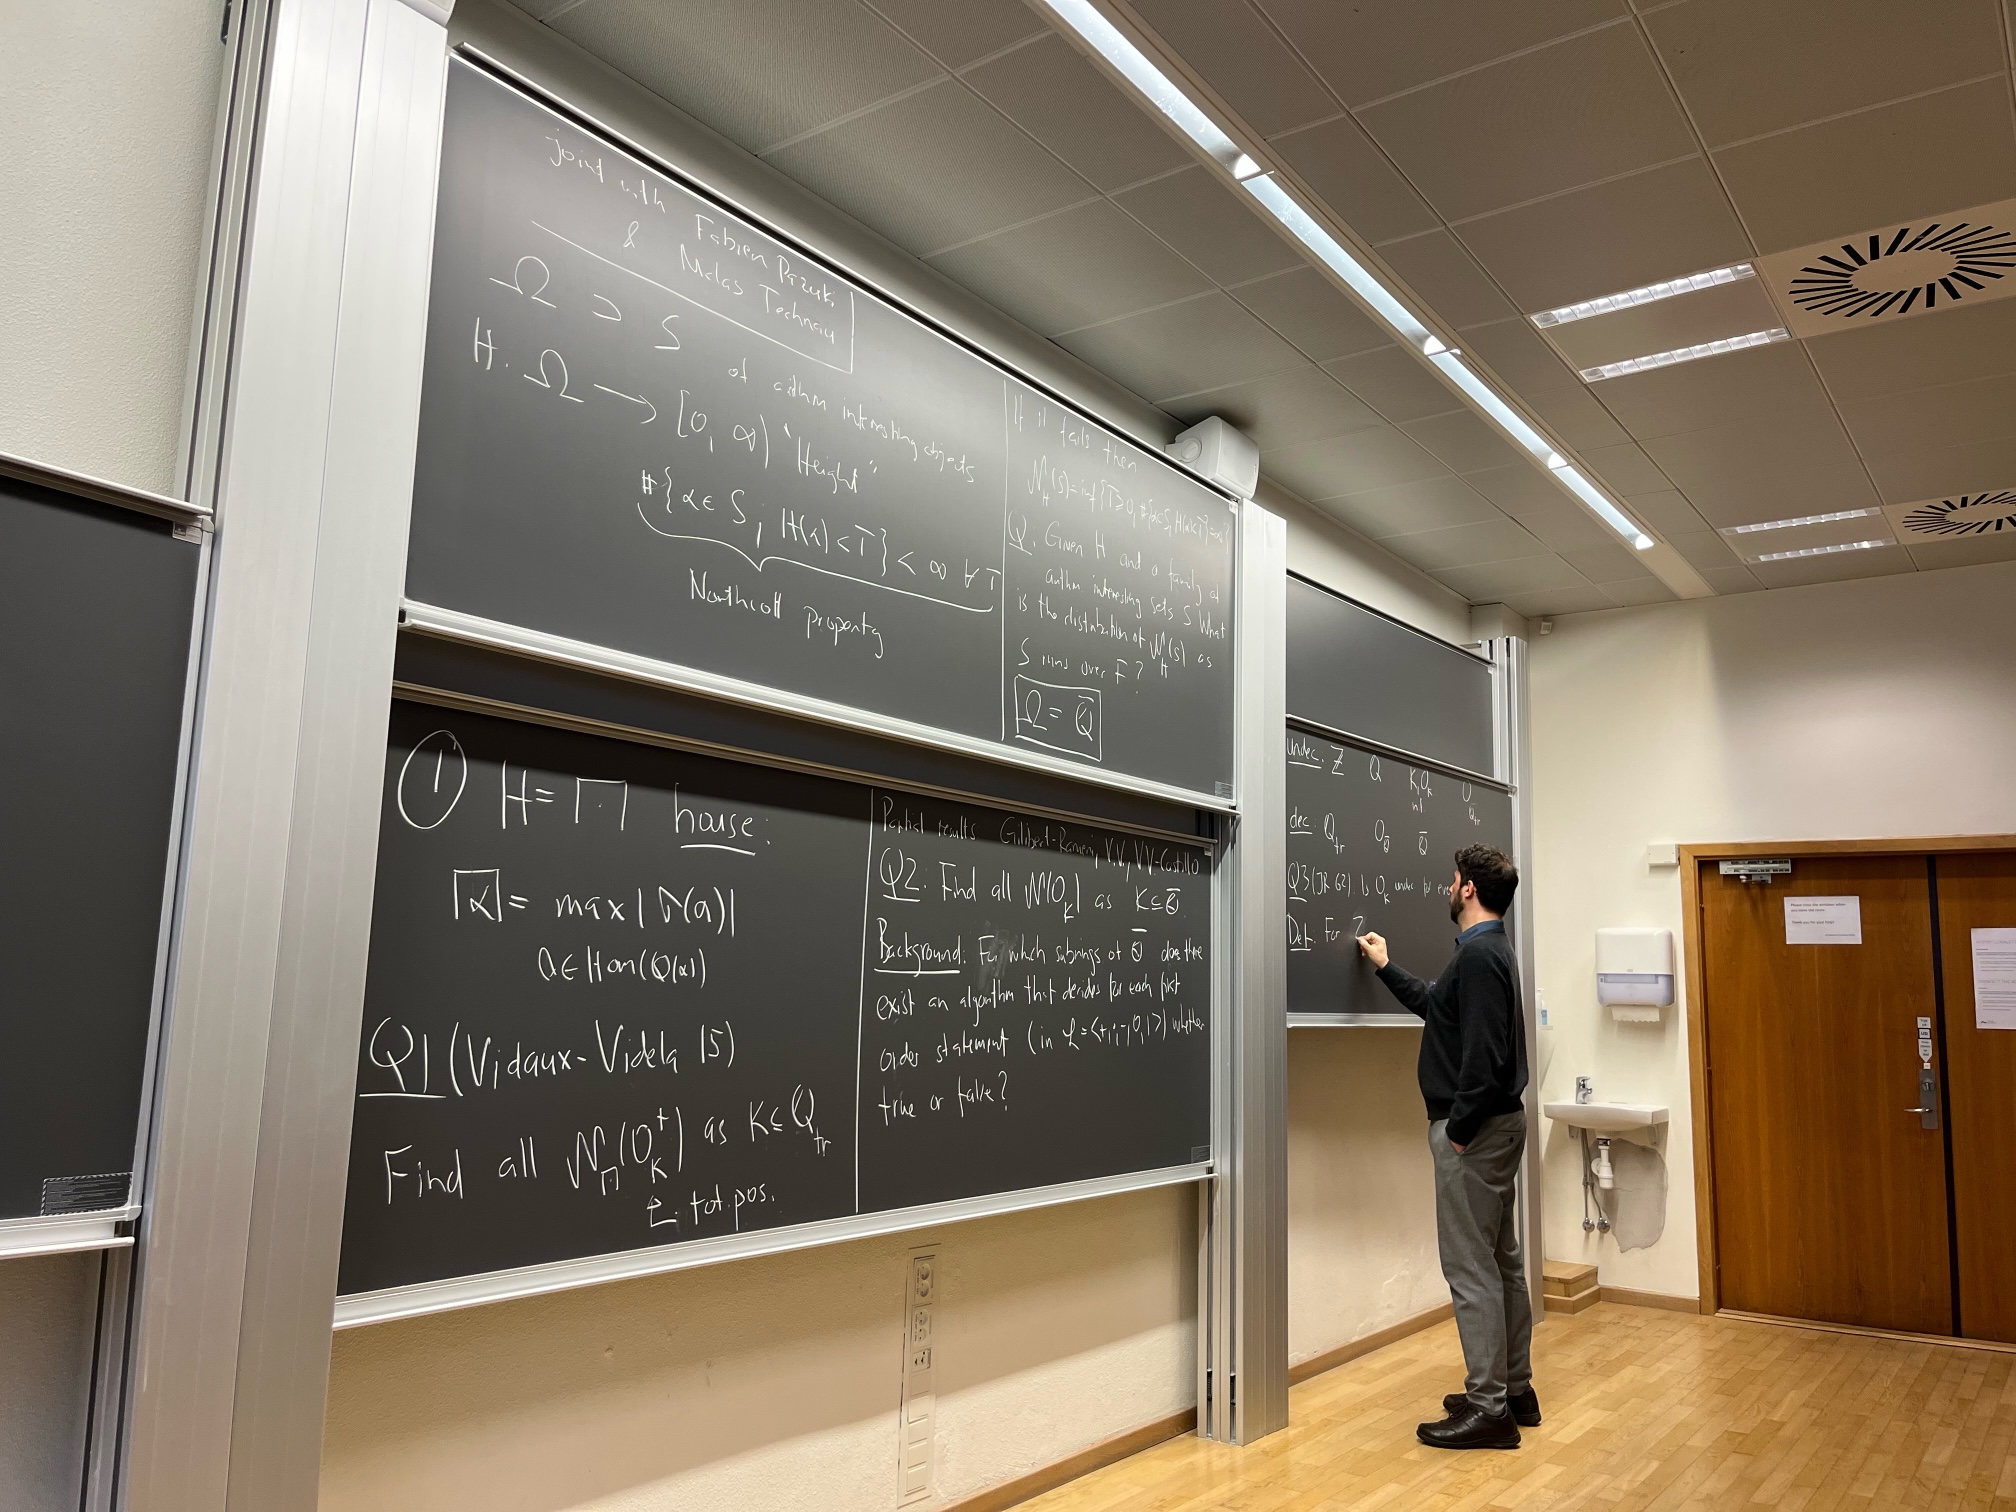 joint with Fabien Pazuki
& Niclas Technau
Ω ⊃ S of arithm interesting objects
H: Ω → [0, ∞) "Height"
#{α ∈ S; H(α) < T} < ∞ ∀ T
Northcott property
If it fails then
𝒩_H(S) = inf{T ≥ 0, #{α ∈ S, H(α) < T} = ∞}
Q. Given H and a family of
arithm interesting sets S What
is the distribution of 𝒩_H(S) as
S runs over F?
Ω = Q̄
① H = ⌈·⌉ house:
⌈α⌉ = max |σ(α)|
σ ∈ Hom(Q(α))
Q1 (Vidaux-Videla 15)
Find all 𝒩_⌈⌉(O_K^+) as K ⊆ Q_tr
tot. pos.
Partial results Gillibert-Ranieri, V.V., VV-Castillo
Q2. Find all 𝒩(O_K) as K ⊆ Q̄.
Background: For which subrings of Q̄ does there
exist an algorithm that decides for each first
order statement (in ℒ = <+, ·, -, 0, 1>) whether
true or false?
undec. Z Q K, O_K O_Q_tr
nf
dec. Q_tr O_Q̄ Q̄
Q3 (JR 62). Is O_K undec for eve
Def. For